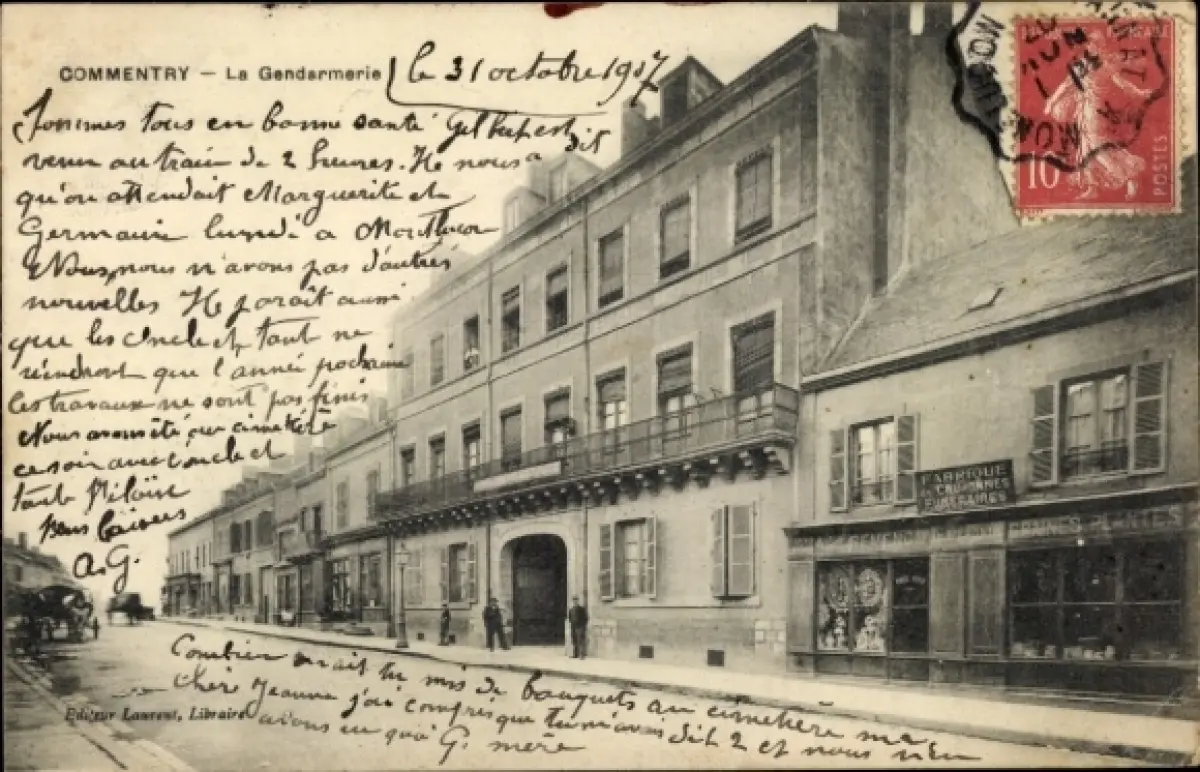 COMMENTRY — La Gendarmerie
le 31 octobre 1907
Sommes tous en bonne santé Gilbert est
venu au train de 2 heures. Il nous a dit
qu'on attendait Marguerite et
Germaine lundi a Montluçon
Nous, nous n'avons pas d'autres
nouvelles Il parait aussi
que les oncle et tante ne
viendront que l'année prochaine
les travaux ne sont pas finis
Nous avons été au cimetière
ce soir avec l'oncle et
tante Héloïse
Bons baisers
A. G.
Combien avait tu mis de bouquets au cimetière ma
chère Jeanne j'ai compris que tu m'avais dit 2 et nous n'en
avons eu qu'a G. mère
Editeur Laurent, Libraire
10
POSTES
FABRIQUE
DE COURONNES
FUNERAIRES
GRAINES PLANTES